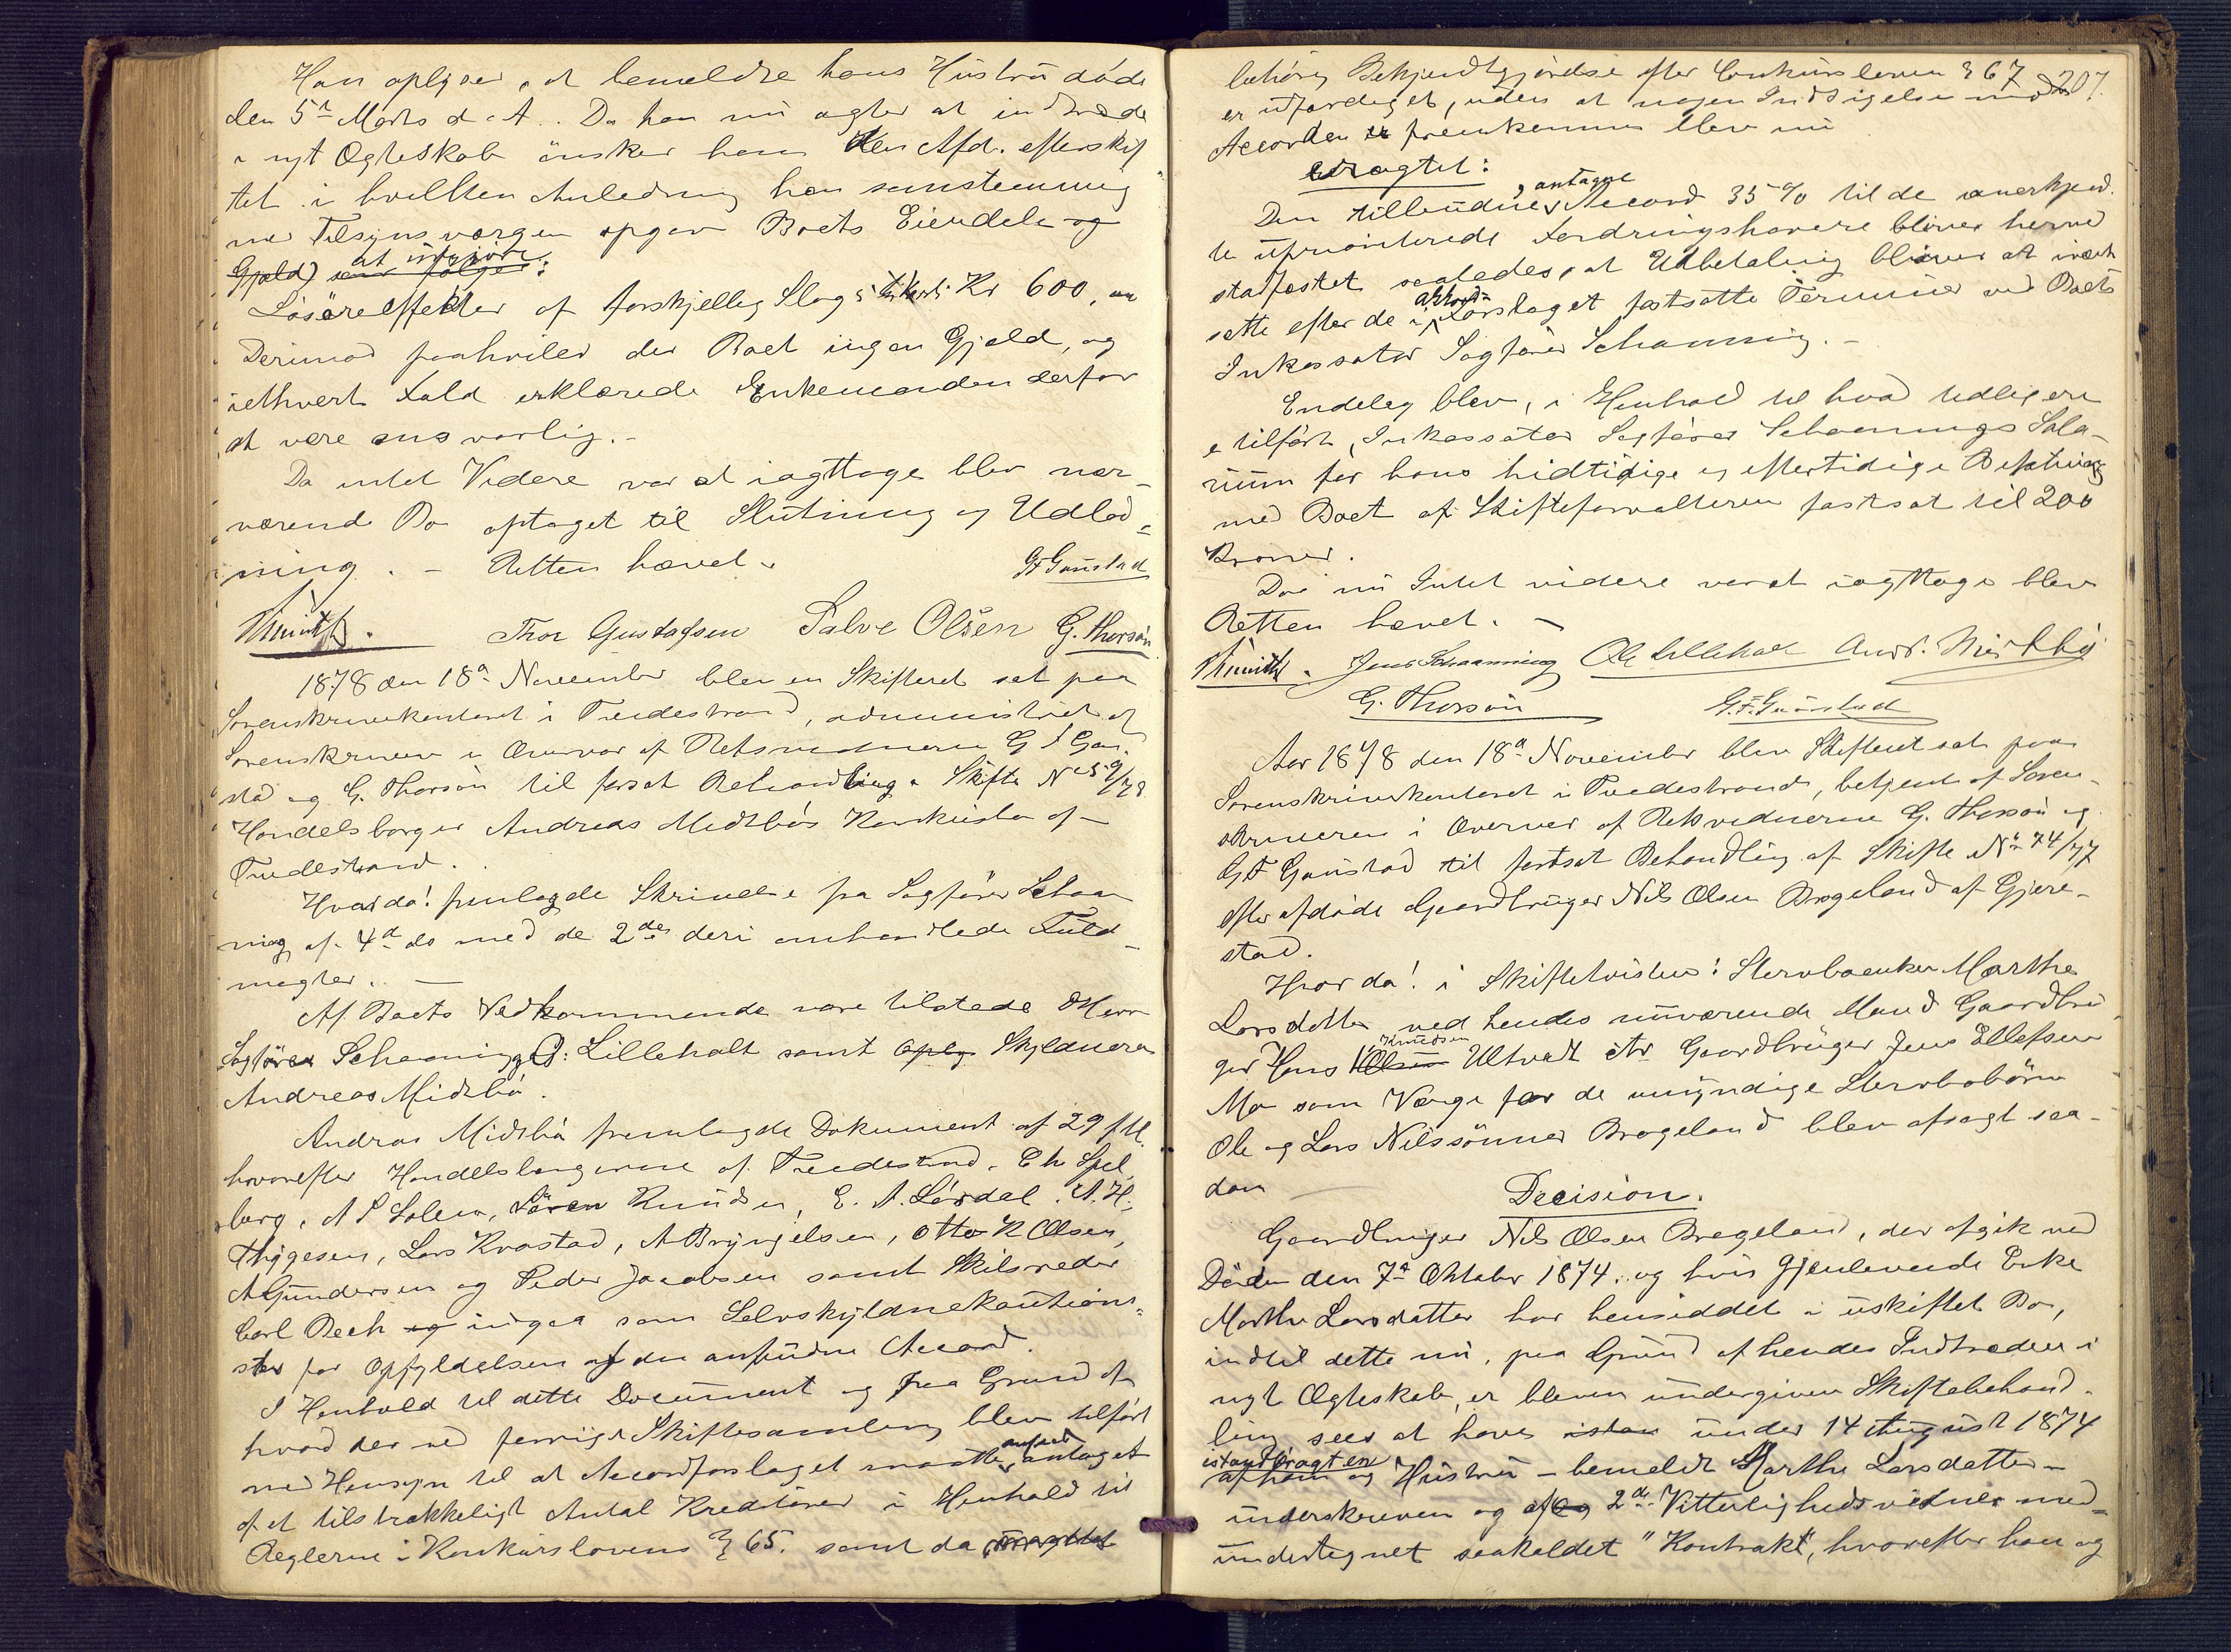 Han oplyser, at bemeldte hans Hustru döde
den 5te Marts d. A. Da han nu agter at indtræde
i nyt Ægteskab önsker han den Afd. efterskif
tet i hvilken Anledning han samstemmig
med Tilsynsværgen opgav Boets Eiendele og
Gjæld) at udgjöre
som fölger:
Lösöreeffekter af forskjellig Slags Kr 600,
Derimod paahviler der Boet ingen Gjæld, og
iethvert Fald erklærede Enkemanden derfor
at være ansvarlig. -
Da intet Videre var at iagttage blev nær-
værende Bo optaget til Slutning og Udlod-
ning. - Retten hævet.
GF Gaustad
Thor Gustafsen Salve Olsen G. Thorsön
1878 den 18de November blev en Skifteret sat paa
Sorenskriverkontoret i Tvedestrand, administreret af
Sorenskriveren i Overvær af Retsvidnerne G F Gau-
stad og G. Thorsön til forsat Behandling a Skifte No 59/78
Handelsborger Andreas Midtbös Konkursbo af
Tvedestrand.
Hvorda! fremlagde Skrivelse fra Sagförer Schan
ning af 4de ds med de 2de deri omhandlede Fuld-
magter. -
Af Boets Vedkommende vare tilstede Herr
Sagförer Schanning, O: Lilleholt samt Skyldneren
Andreas Midtbö.
Andreas Midtbö fremlagde Dokument af 29 f M.
hvorefter Handelsborgerne af Tvedestrand. Chr Spil
berg, A P Solem, Sören Knudsen, E. A. Lördal. A. H.
Thygesen, Lars Kvastad, A Brynjelsen, Otto K Olsen,
A Gundersen og Peder Jacobsen samt Skibsreder
Carl Bech og ingaa som Selvskyldnerkautioni-
ster for Opfyldelsen af den anbudne Accord.
I Henhold til dette Document og paa Grund af
hvad der ved forrige Skiftesamling blev tilfört
med Hensyn til at Accordforslaget maatte ansees antaget
af et tilstrækkeligt Antal Kreditorer i Henhold til
Reglerne i Konkurslovens § 65. samt da
behörig Bekjendtgjörelse efter Konkursloven § 67 207.
er udfærdiget, uden at nogen Indsigelse mod
Accorden er fremkommen blev nu
eragtet:
Den tilbudne, antagne Accord 35 % til de anerkjend-
te uprioriterede Fordringshavere bliver herved
stadfæstet saaledes, at Udbetaling bliver at iværk
sætte efter de i Akkords Forslaget fastsatte Terminer ved Boets
Inkassator Sagförer Schanning. -
Endelig blev, i Henhold til hvad tidligere
e tilfört, Inkassator Sagförer Schannings Sala-
rium for hans hidtidige og eftertidige Befatning
med Boet af Skifteforvalteren fastsat til 200
Kroner.
Da nu Intet videre var at iagttage blev
Retten hævet. -
Jens Schanning Ole Lilleholt Andr. Midtbö
G. Thorsön G. F. Gaustad
Aar 1878 den 18de November blev Skifteret sat paa
Sorenskriverkontoret i Tvedestrand, betjent af Soren-
skriveren i Overvær af Retsvidnerne G. Thorsön og
G F Gaustad til fortsat Behandling af Skifte No 74/77
efter afdöde Gaardbruger Nils Olsen Brogeland af Gjere-
stad.
Hvor da! i Skiftetvisten: Stervboenken Marthe
Larsdatter ved hendes nuværende Mand Gaardbru
ger Hans Knudsen Ulltvedt ctr Gaardbruger Jens Ellefsen
Mo som Værge for de umyndige Stervbobörn
Ole og Lars Nilssönner Brogeland blev afsagt saa-
dan
Decision.
Gaardbruger Nils Olsen Brogeland, der afgik ved
Döden den 7de Oktober 1874. og hvis gjenlevende Enke
Marthe Larsdatter har hensiddet i uskiftet Bo,
indtil dette nu, paa Grund af hendes Indtræden i
nyt Ægteskab, er bleven undergiven Skiftebehand-
ling sees at have under 14 August 1874
istandbragt en
af ham og Hustru - bemeldt Marthe Larsdatter -
underskreven og af 2de Vitterlighedsvidner med-
undertegnet saakaldet "Kontrakt", hvorefter han og